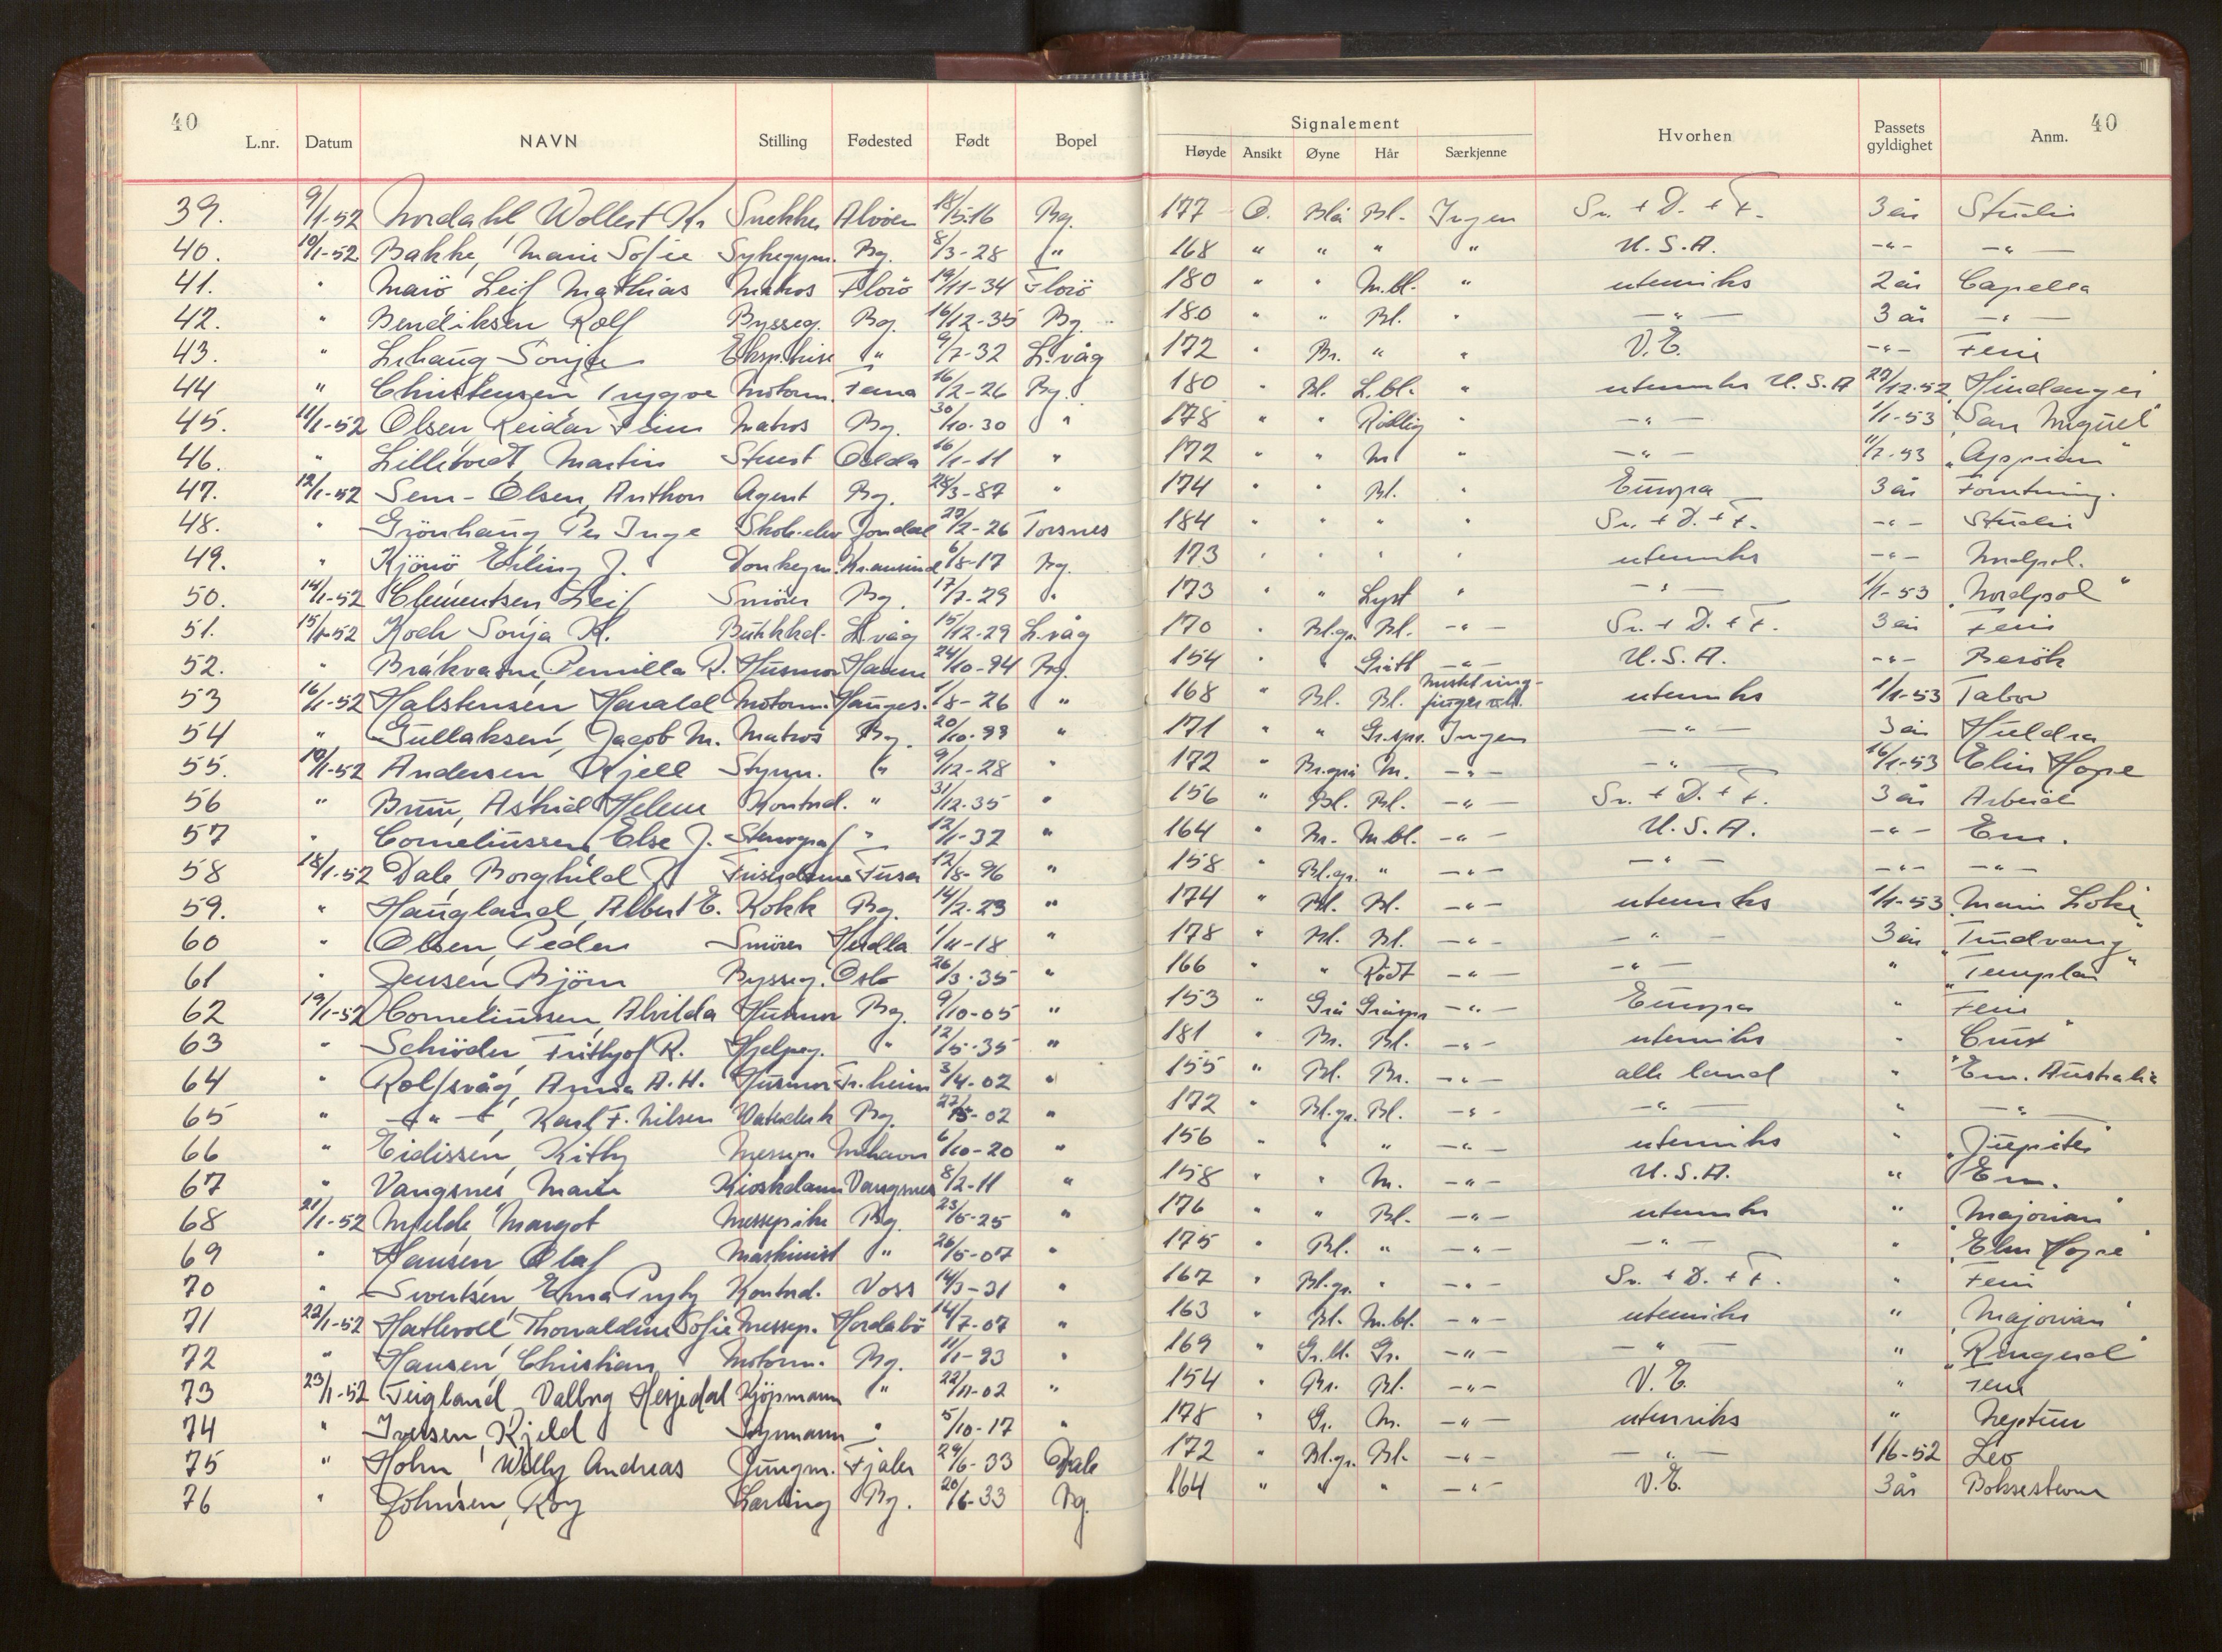 40
40
L.nr. Datum NAVN Stilling Fødested Født Bopel
Signalement
Høyde Ansikt Øyne Hår Særkjenne Hvorhen Passets gyldighet Anm.
39. 9/1-52 Nordahl Wollert Kr Snekker Alvöen 18/5-16 Bg. 177 O. Blå Bl. Ingen Sv. + D. + F. 3 år Studie
40. 10/1-52 Bakke, Marie Sofie Sykegym. Bg. 8/3-28 " 168 " " " " U.S.A. -"- -"-
41. " Marö Leif Mathias Matros Florö 19/11-34 Florö 180 " " M.bl. " utenriks 2 år Capella
42. " Bendiksen Rolf Bysseg. Bg. 16/12-35 Bg. 180 " " Bl. " -"- 3 år -"-
43. " Sonja Eksp.trise " 9/7-32 L.våg 172 " Br. " " V.E. -"- Ferie
44 " Christensen Trygve Motorm. Fana 16/2-26 Bg. 180 " Bl. L.bl. " utenriks U.S.A 29/12-52 Hindanger
45. 11/1-52 Olsen, Reidar Matros Bg. 30/10-30 " 178 " " Rödlig " -"- 1/1-53 "San Miguel"
46. " Lilletvedt, Martin Stuert Odda 16/1-11 " 172 " " M " -"- "Appian"
47. 12/1-52 Sem-Olsen, Anthon Agent Bg. 28/3-87 " 174 " " Bl. " Europa 3 år Forretning.
48. " Grönhaug, Per Inge Skole-elev Jondal 27/2-26 Torsnes 184 " " " " Sv. + D. + F. -"- Studie
49. " Kjönö Erling J. Donkeym. Kr.ansund 6/8-17 Bg. 173 " " " " utenriks -"- Nordpol.
50. 14/1-52 Clementsen Leif Smörer Bg. 17/7-29 " 173 " " Lyst " -"- 1/1-53 "Nordpol"
51. 15/1-52 Koch Sonja K. Butikkd. L.våg 15/12-29 L.våg 170 " Bl.gr. Bl. -"- Sv. + D. + F. 3 år Ferie
52. " Pernilla R. Husmor 24/10-94 Bg. 154 " " Grått -"- U.S.A. -"- Besök
53 16/1-52 Halstensen Harald Motorm. Hauges. 1/8-26 " 168 " Bl. Bl. Mistet ring- finger utenriks 1/1-53 Tabor
54 " Gullaksen, Jacob M. Matros Bg. 20/10-99 " 171 " " Gr.spr. Ingen -"- 3 år Huldra
55. Andersen, Kjell Styrm. " 9/12-28 " 172 " Br.grå M. -"- -"- 16/1-53 Elin Hope
56 " Bruu, Astrid Helene Kontord. " 31/12-35 " 156 " Bl. Bl. -"- Sv. + D. + F. 3 år Arbeid
57 " Corneliussen, Else J. Stenograf " 12/1-32 " 164 " Br. M.bl. -"- U.S.A. -"- Em.
58 18/1-52 Dale, Borghild Frisördame Fusa 12/8-96 " 158 " Bl.gr. " -"- -"- -"- -"-
59. " Haugland, Albert E. Kokk Bg. 14/2-23 " 174 " Bl. Bl. -"- utenriks 1/1-53
60 " Olsen, Peder Smörer Herdla 1/11-18 " 178 " Bl. Bl. -"- -"- 3 år "Tindvang"
61 " Jensen Björn Bysseg. Oslo 26/3-35 " 166 " " Rödt -"- -"- " "Templar"
62 19/1-52 Corneliussen, Alvilda Husmor Bg. 9/10-05 " 153 " Grå Gråspr -"- Europa " Ferie
63 " Schröder, Frithjof R. Hjelpeg. " 12/5-35 " 181 " Br. Bl. -"- utenriks "
64 " Rolfsvåg, Anna A.H. Husmor Tr.heim 3/4-02 " 155 " Bl. Br. -"- alle land " Em. Australia
65 " -"-, Karl F. Nilsen Bg. 172 " Bl.gr. Bl. -"- -"- " -"-
66 " Eidissen, Kitty Messep. Mehavn 6/10-20 " 156 " " " -"- utenriks " "Jupiter"
67 " Vangsnes Marie Kioskdame Vangsnes 8/2-11 " 158 " " M. -"- U.S.A. " Em.
68 21/1-52 Mjelde Margot Messepike Bg. 23/5-25 " 176 " " Bl. -"- utenriks " "Majorian"
69 " Hansen Olaf Maskinist " 26/5-07 " 175 " Bl. " -"- -"- " "Elin Hope"
70 " Sivertsen, Erna Kontord. Voss 14/3-31 " 167 " Bl.gr. " -"- Sv. + D. + F. " Ferie
71 22/1-52 Hatlevoll Thorvaldine Sofie Messep. Hordabö 14/7-07 " 163 " Bl. M.bl. -"- utenriks " "Majorian"
72 " Hansen, Christian Motorm. Bg. 11/1-93 " 169 " Gr.bl. Gr. -"- -"- " "Ringerd"
73 23/1-52 Teigland, Valborg Hesjedal Kjöpmann " 22/11-02 " 154 " Br. Bl. -"- V.E. " Ferie
74 " Iversen, Kjeld Styrmann " 5/10-17 " 178 " Gr. M. -"- utenriks " Neptun
75 " Holm, Willy Andreas Jungm. Fjaler 29/6-33 Dale 172 " Bl.gr. Bl. -"- -"- 1/6-52 Leo
76 " Johnsen, Roy Lærling Bg. 20/6-33 Bg. 164 " " " -"- V.E. 3 år Boksestevne